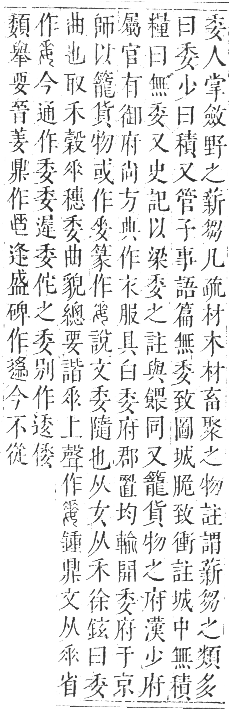 委人掌斂野之薪芻凡疏材木材畜聚之物註謂薪芻之類多
曰委少曰積又管子事語篇無委致圍城脆致衝註城中無積
糧曰無委又史記以梁委之註與餧同又籠貨物之府漢少府
屬官有御府尚方典作衣服具白委府郡置均輸開委府于京
師以籠貨物或作委篆作說文委隨也从女从禾徐鉉曰委
曲也取禾穀垂穗委曲貌總要諧垂上聲作鍾鼎文从垂省
作今通作委委遲委佗之委別作逶倭
類舉要晉姜鼎作逢盛碑作遙今不從